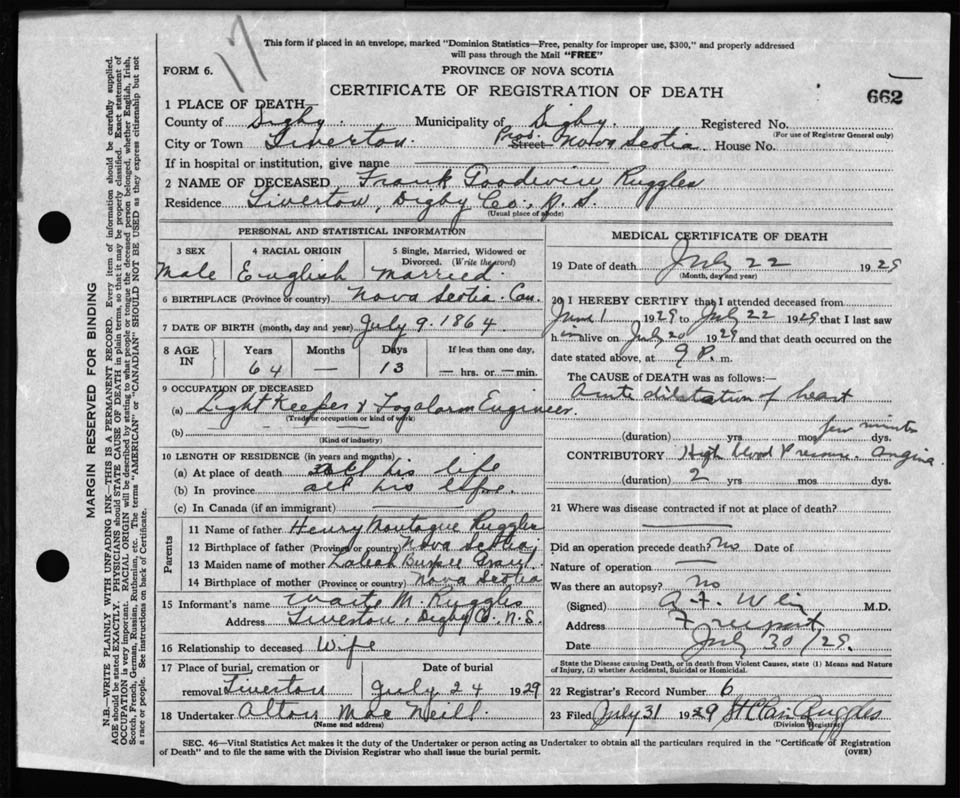 17
This form if placed in an envelope, marked "Dominion Statistics—Free, penalty for improper use, $300," and properly addressed
will pass through the Mail "FREE"
FORM 6.
PROVINCE OF NOVA SCOTIA
CERTIFICATE OF REGISTRATION OF DEATH
662
1 PLACE OF DEATH
County of Digby. Municipality of Digby. Registered No.
(For use of Registrar General only)
City or Town Tiverton Street Prov. Nova Scotia House No.
If in hospital or institution, give name
2 NAME OF DECEASED Frank Goodwin Ruggles
Residence Tiverton, Digby Co., N.S.
(Usual place of abode)
PERSONAL AND STATISTICAL INFORMATION
3 SEX 4 RACIAL ORIGIN 5 Single, Married, Widowed or
Divorced. (Write the word)
Male English Married.
6 BIRTHPLACE (Province or country) Nova Scotia. Can.
7 DATE OF BIRTH (month, day and year) July 9. 1864.
8 AGE IN Years Months Days If less than one day,
64 — 13 — hrs. or — min.
9 OCCUPATION OF DECEASED
(a) Light Keeper & Fogalarm Engineer.
(Trade or occupation or kind of work)
(b)
(Kind of industry)
10 LENGTH OF RESIDENCE (in years and months)
(a) At place of death all his life
(b) In province all his life.
(c) In Canada (if an immigrant)
Parents
11 Name of father Henry Montague Ruggles
12 Birthplace of father (Province or country) Nova Scotia
13 Maiden name of mother
14 Birthplace of mother (Province or country) Nova Scotia
15 Informant's name Waite M. Ruggles
Address Tiverton, Digby Co., N.S.
16 Relationship to deceased Wife
17 Place of burial, cremation or Date of burial
removal Tiverton July 24 1929
18 Undertaker Alton MacNeill.
(Name and address)
MEDICAL CERTIFICATE OF DEATH
19 Date of death July 22 1929
(Month, day and year)
20 I HEREBY CERTIFY that I attended deceased from
June 1 1929 to July 22 1929 that I last saw
him alive on July 20 1929 and that death occurred on the
date stated above, at 9 P. m.
The CAUSE OF DEATH was as follows:—
Acute dilatation of heart
few minutes
(duration) yrs. mos. dys.
CONTRIBUTORY High blood Pressure. Angina
(duration) 2 yrs. mos. dys.
21 Where was disease contracted if not at place of death?
Did an operation precede death? no Date of
Nature of operation
Was there an autopsy? no
(Signed) M.D.
Address Freeport
Date July 30/29.
State the Disease causing Death, or in death from Violent Causes, state (1) Means and Nature
of Injury, (2) whether Accidental, Suicidal or Homicidal.
22 Registrar's Record Number 6
23 Filed July 31 1929 St Clair Ruggles
(Division Registrar)
SEC. 46—Vital Statistics Act makes it the duty of the Undertaker or person acting as Undertaker to obtain all the particulars required in the "Certificate of Registration
of Death" and to file the same with the Division Registrar who shall issue the burial permit.
(OVER)
MARGIN RESERVED FOR BINDING
N.B.—WRITE PLAINLY WITH UNFADING INK—THIS IS A PERMANENT RECORD. Every item of information should be carefully supplied.
AGE should be stated EXACTLY. PHYSICIANS should STATE CAUSE OF DEATH in plain terms, so that it may be properly classified. Exact statement of
OCCUPATION is very important. RACIAL ORIGIN will be described by stating to what people or tongue the deceased person belonged, whether English, Irish,
Scotch, French, German, Russian, Ruthenian, etc. The terms "AMERICAN" or "CANADIAN" SHOULD NOT BE USED as they express citizenship but not
a race or people. See instructions on back of Certificate.